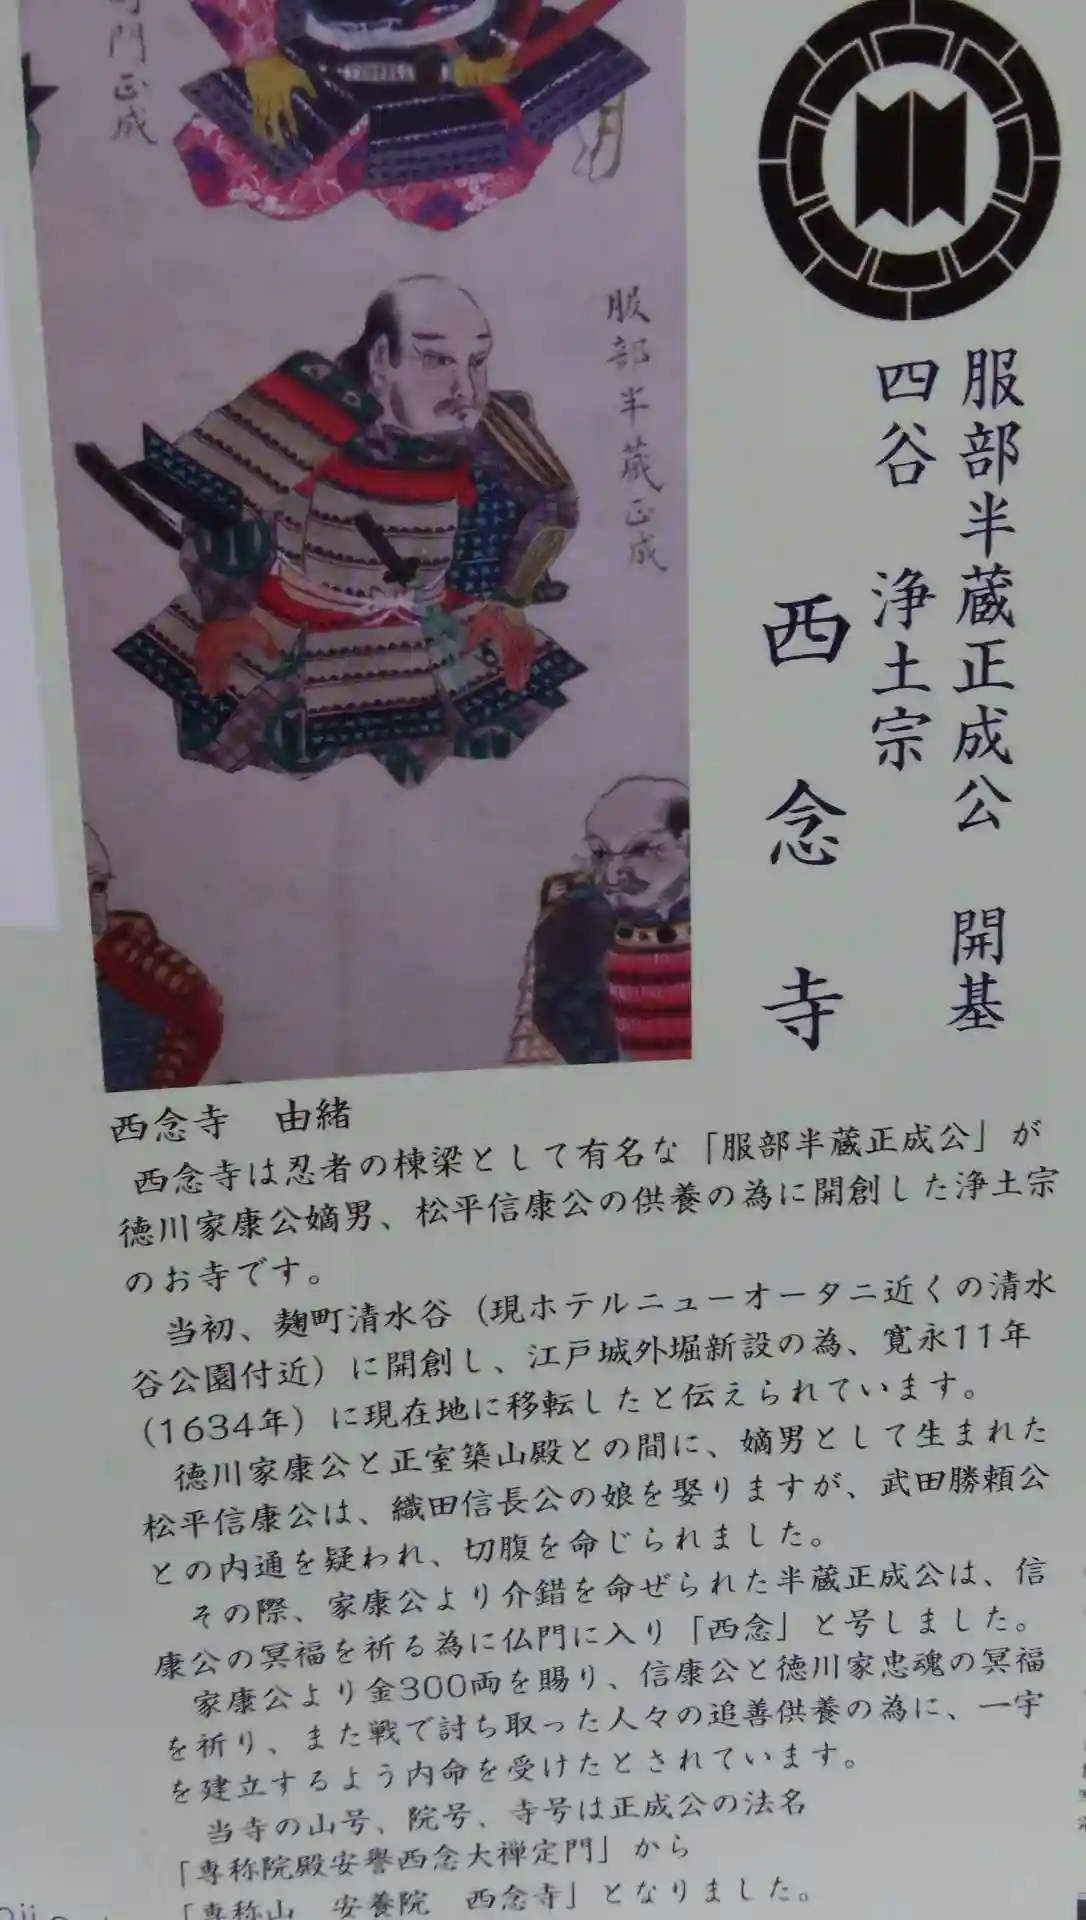 門正成
服部半蔵正成
服部半蔵正成公 開基
四谷 浄土宗
西念寺
西念寺 由緒
西念寺は忍者の棟梁として有名な「服部半蔵正成公」が
徳川家康公嫡男、松平信康公の供養の為に開創した浄土宗
のお寺です。
当初、麹町清水谷（現ホテルニューオータニ近くの清水
谷公園付近）に開創し、江戸城外堀新設の為、寛永11年
（1634年）に現在地に移転したと伝えられています。
徳川家康公と正室築山殿との間に、嫡男として生まれた
松平信康公は、織田信長公の娘を娶りますが、武田勝頼公
との内通を疑われ、切腹を命じられました。
その際、家康公より介錯を命ぜられた半蔵正成公は、信
康公の冥福を祈る為に仏門に入り「西念」と号しました。
家康公より金300両を賜り、信康公と徳川家忠魂の冥福
を祈り、また戦で討ち取った人々の追善供養の為に、一宇
を建立するよう内命を受けたとされています。
当寺の山号、院号、寺号は正成公の法名
「専称院殿安譽西念大禅定門」から
「専称山 安養院 西念寺」となりました。